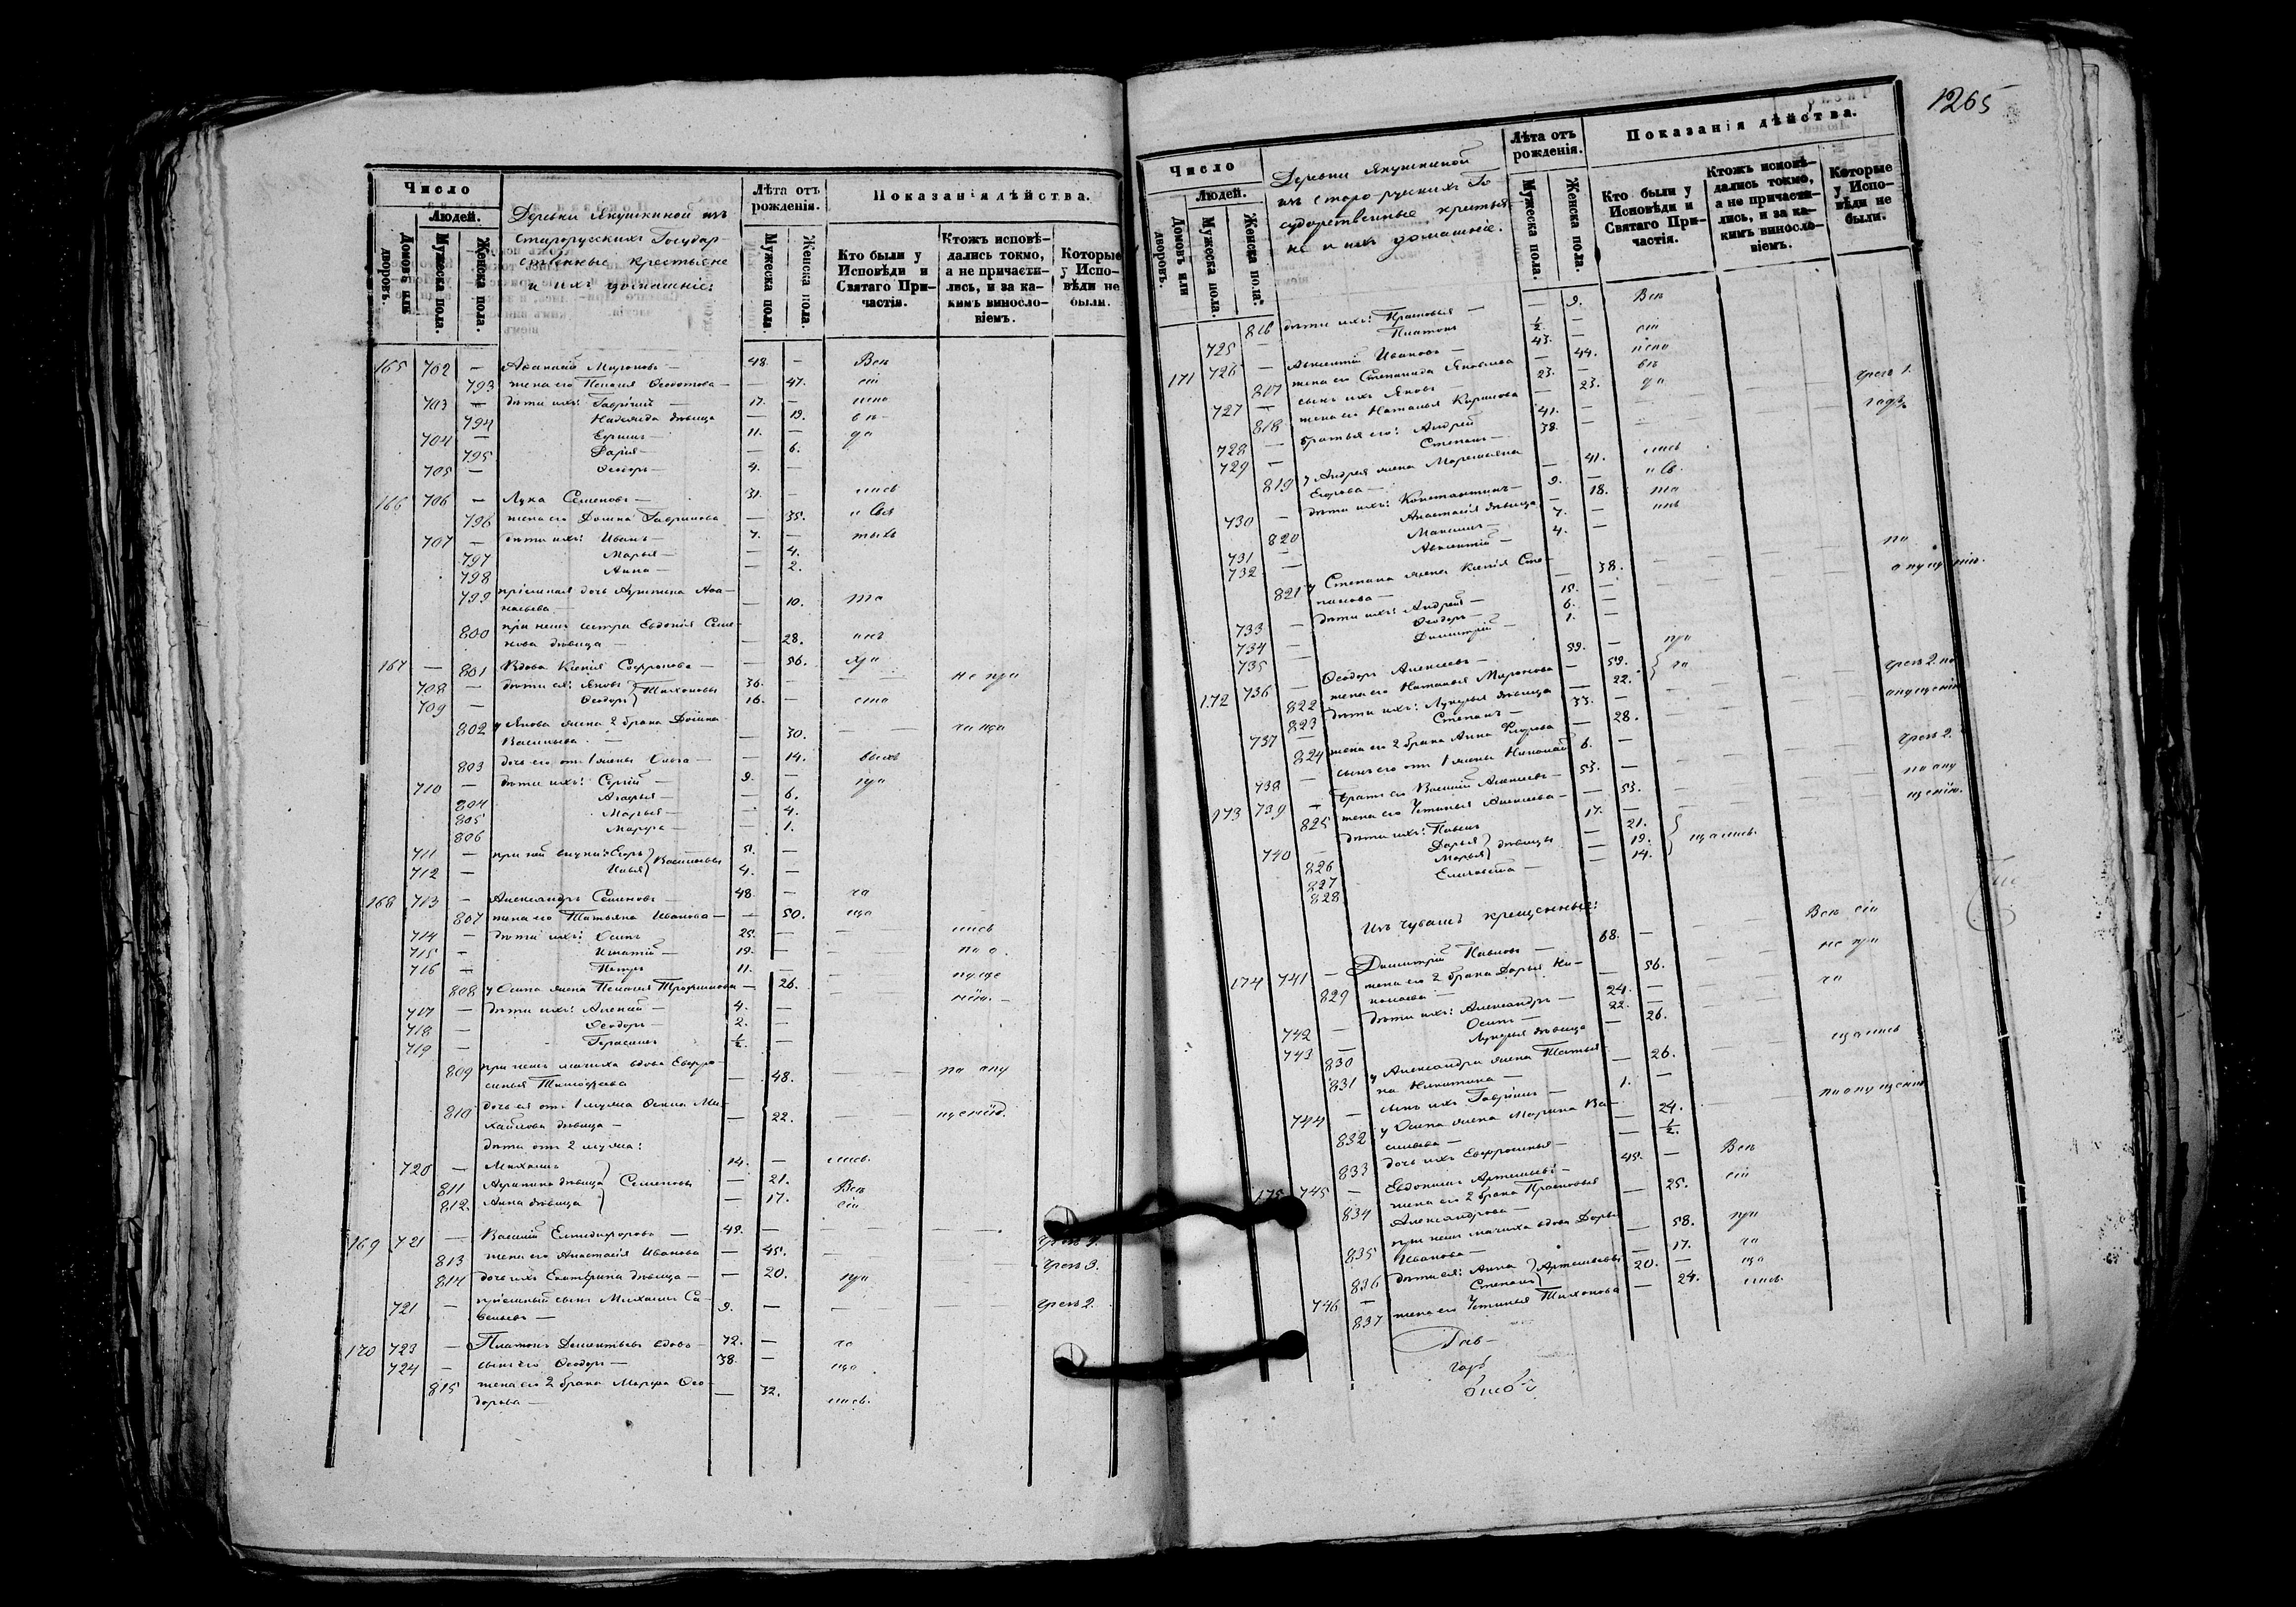 1265
Число
Людей.
Домовъ или дворовъ.
Мужеска пола.
Женска пола.
Деревни Якушкиной изъ
старорусскихъ Государ-
ственные крестьяне
и ихъ домашніе:
Лѣта отъ рожденія.
Мужеска пола.
Женска пола.
Показанія дѣйства.
Кто были у Исповѣди и Святаго При-частія.
Ктожъ исповѣ-дались токмо, а не причасти-лись, и за ка-кимъ винословіемъ.
Которые у Испо-вѣди не были.
165 702 — Аѳанасій Мироновъ — 48. — Всѣ
793 жена его Пелагія Ѳедотова — — 47. сіи
703 — дѣти ихъ: Гавріилъ — 17. — испо
794 Надежда дѣвица — 19. вѣ-
704 — Ефимъ — 11. — да
795 Дарья — — 6.
705 — Ѳеодоръ — 4. —
166 706 — Лука Семеновъ — 31. — лись
796 жена его Домна Гаврилова — 35. и Свя
707 — дѣти ихъ: Иванъ — 7. — тыхъ
797 Марья — — 4.
798 Анна — — 2.
799 пріемная дочь Агрипина Аѳа-
насьева — — 10. та
800 при немъ сестра Евдокія Семе-
нова дѣвица — — 28. инъ
167 — 801 Вдова Ксенія Софронова — — 56. при
708 — дѣти ея: Яковъ } Тихоновы 36. — — не при
709 — Ѳеодоръ } 16. — ста
802 у Якова жена 2 брака Домна
Васильева — — 30. — ча
803 дочь его отъ 1 жены Ольга — — 14.
710 — дѣти ихъ: Сергій — 9. —
804 Агафья — — 6.
805 Марья — — 4.
806 Марфа — — 1.
711 — при ней внуки: Егоръ } Васильевы —
712 — Илья } 4. —
168 713 — Александръ Семеновъ — 48. — ча
807 жена его Татьяна Иванова — — 50. ща
714 — дѣти ихъ: Осипъ 25. — — лись
715 — Игнатій — 19. — — по о
716 — Петръ 11. — — пуще
808 у Осипа жена Пелагія Трофимова — 26. — нію. —
717 — дѣти ихъ: Алексѣй — 4. —
718 — Ѳеодоръ — 2. —
719 — Герасимъ ½. —
809 при немъ мачиха вдова Евфро-
синья Тимоѳеева — 48. — по опу
810 дочь ея отъ 1 мужа Ми-
хайлова дѣвица — — 22. — щенію.
дѣти отъ 2 мужа:
720 — Михаилъ } 14. — лись.
811 Агрипина дѣвица } Семеновы — 21. Всѣ
812. Анна дѣвица } — 17. сіи
169 721 — Василій Елпидифоровъ — 49. — — —
813 жена его Анастасія Иванова — 45. — — чрезъ 3.
814 дочь ихъ Екатерина дѣвица — — 20. при
721 — пріемный сынъ Михаилъ Са-
вельевъ — 9. — — — чрезъ 2.
170 723 — Платонъ Дементьевъ вдовъ — 72. — ча
724 — сынъ его Ѳеодоръ — 38. — ща
815 жена его 2 брака Марфа Ѳео-
дорова — — 32. лись.
Число
Людей.
Домовъ или дворовъ.
Мужеска пола.
Женска пола.
Деревни Якушкиной
изъ старорусскихъ Го-
сударственные крестья-
не и ихъ домашніе.
Лѣта отъ рожденія.
Мужеска пола.
Женска пола.
Показанія дѣйства.
Кто были у Исповѣди и Святаго При-частія.
Ктожъ исповѣ-дались токмо, а не причасти-лись, и за ка-кимъ винословіемъ.
Которые у Испо-вѣди не были.
816 дѣти ихъ: Прасковья — — 9. Всѣ
725 — Платонъ ½. —
171 726 — Авксентій Ивановъ — 43. — сіи
817 жена его Степанида Яковлева — 44. испо
727 — сынъ ихъ Яковъ — 23. — вѣ
818 жена его Наталья Карпова — 23. да
728 — братья его: Андрей 41. — — — чрезъ 1.
729 — Степанъ — 38. — — — годъ
819 у Андрея жена Маремьяна
Егорова — — 41. лись
730 — дѣти ихъ: Константинъ — 9. — и Св.
820 Анастасія дѣвица 18. та
731 — Максимъ — 7. — инъ
732 — Авксентій — 4. —
821 у Степана жена Ксенія Сте-
панова — — 38. — — по
733 — дѣти ихъ: Андрей — 15. — опущенію.
734 — Ѳеодоръ 6. —
735 — Димитрій — 1. —
172 736 — Ѳеодоръ Алексѣевъ — 59. — при
822 жена его Наталья Миронова — 59. } ча
823 дѣти ихъ: Лукерья дѣвица — 22. }
737 — Степанъ — 33. — — — чрезъ 2. по
824 жена его 2 брака Анна Егорова — 28. — — опущенію
738 — сынъ его отъ 1 жены Николай 6. —
173 739 — братъ его Василій Алексѣевъ — 53. — — — чрезъ 2.
825 жена его Устинья Алексѣева — — 53. — — по опу
740 — дѣти ихъ: Павелъ 17. — — — щенію.
826 Дарья } дѣвицы — 21. }
827 Марья } — 19. } щались.
828 Елисавета — — 14. }
Изъ Чувашъ крещенные:
174 741 — Димитрій Павловъ — 68. — — Всѣ сіи
829 жена его 2 брака Дарья Ни-
колаева — — 56. — не при
742 — дѣти ихъ: Александръ — 24. — — ча
743 — Осипъ — 22. —
830 Лукерья дѣвица — 26.
831 у Александра жена Татья-
на Никитина — — 26. — щались
744 — сынъ ихъ Гавріилъ — 1. —
832 у Осипа жена Марина Ва-
сильева — — 24. — по опущенію
833 дочь ихъ Евфросинья — — ½.
175 745 — Евдокимъ Артемьевъ — 45. — Всѣ
834 жена его 2 брака Прасковья
Александрова — — 25. сіи
835 при немъ мачиха вдова Дарья
Иванова — — 58. при
836 дѣти ея: Анна } Артемьевы — 17. ча
746 — Степанъ } 20. — ща
837 жена его Устинья Тихонова — 24. лись.